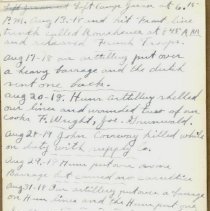 Left Camp Jaron at 6:15
P.M. Aug 13-18 and hit front line
trench called Ranshever at 8:45 A.M.
and relieved French Troops.
Aug 17-18 our artillery put over
a heavy barrage and the dutch
sent one back.
Aug 20-18. Hun artillery shelled
our line and wounded two of our
cooks F. Wright, Joe. Griswold.
Aug 28-18 John Conway killed while
on duty with supply Co.
Aug 29-18 Hun put over some
Barrage but caused no casualties
Aug 31-18 Our artillery put over a barrage
on Hun lines and the Hun put one